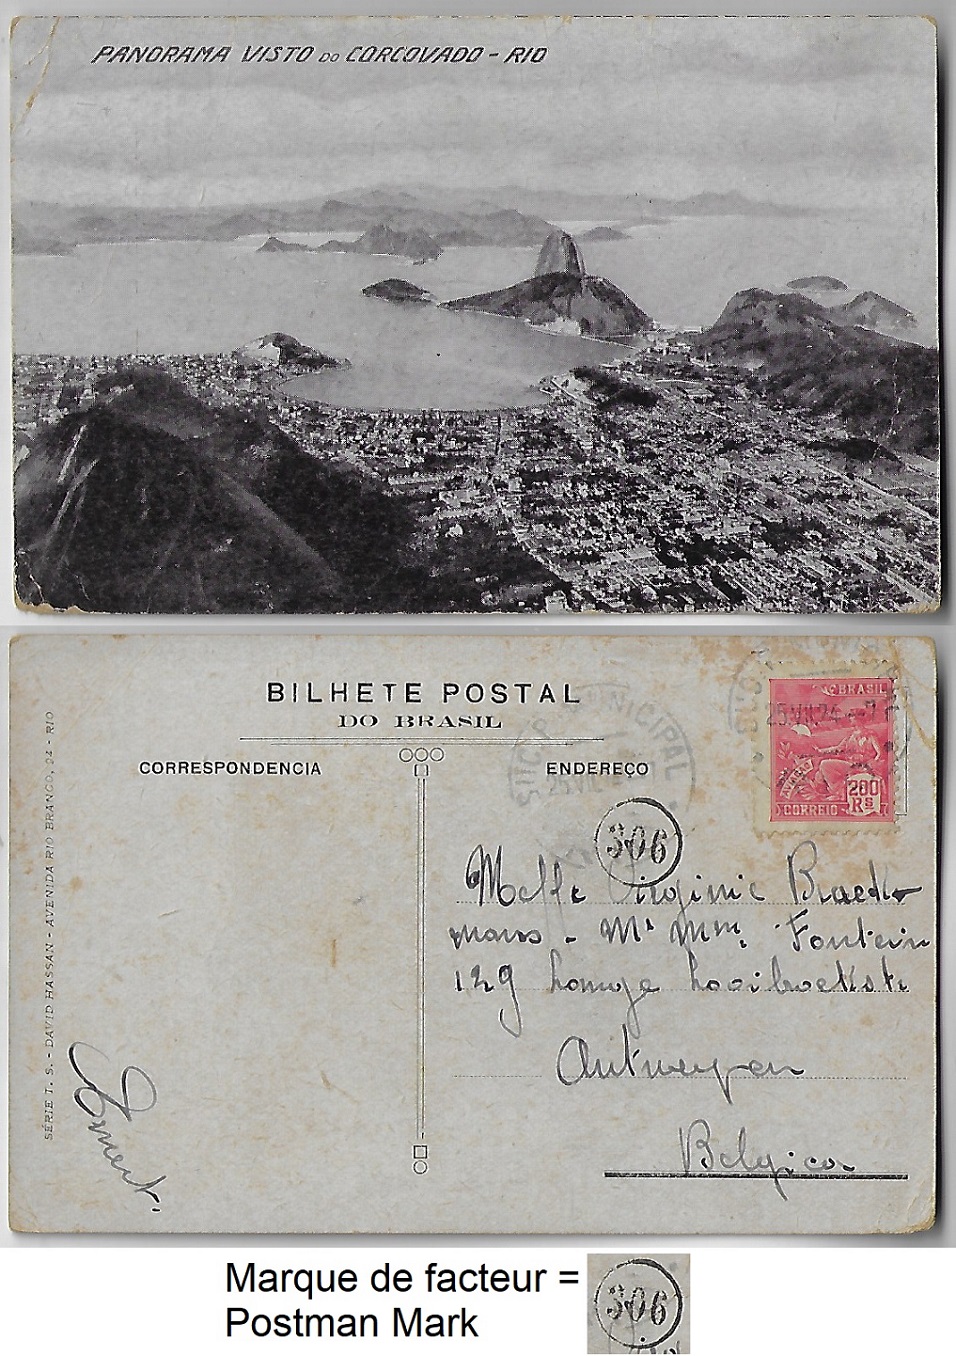 PANORAMA VISTO DO CORCOVADO - RIO
BILHETE POSTAL
DO BRASIL
CORRESPONDENCIA
ENDEREÇO
SUCC. MUNICIPAL
25.VII.24
BRASIL
AVIAÇÃO
200
Rs
CORREIO
306
Melle Virginie Braeck
mans - Mr Mme Fontein
129 Longe Hooibeekstr
Antwerpen
Belgica
Ernest
SÉRIE T. S. - DAVID HASSAN - AVENIDA RIO BRANCO, 94 - RIO
Marque de facteur =
Postman Mark
306